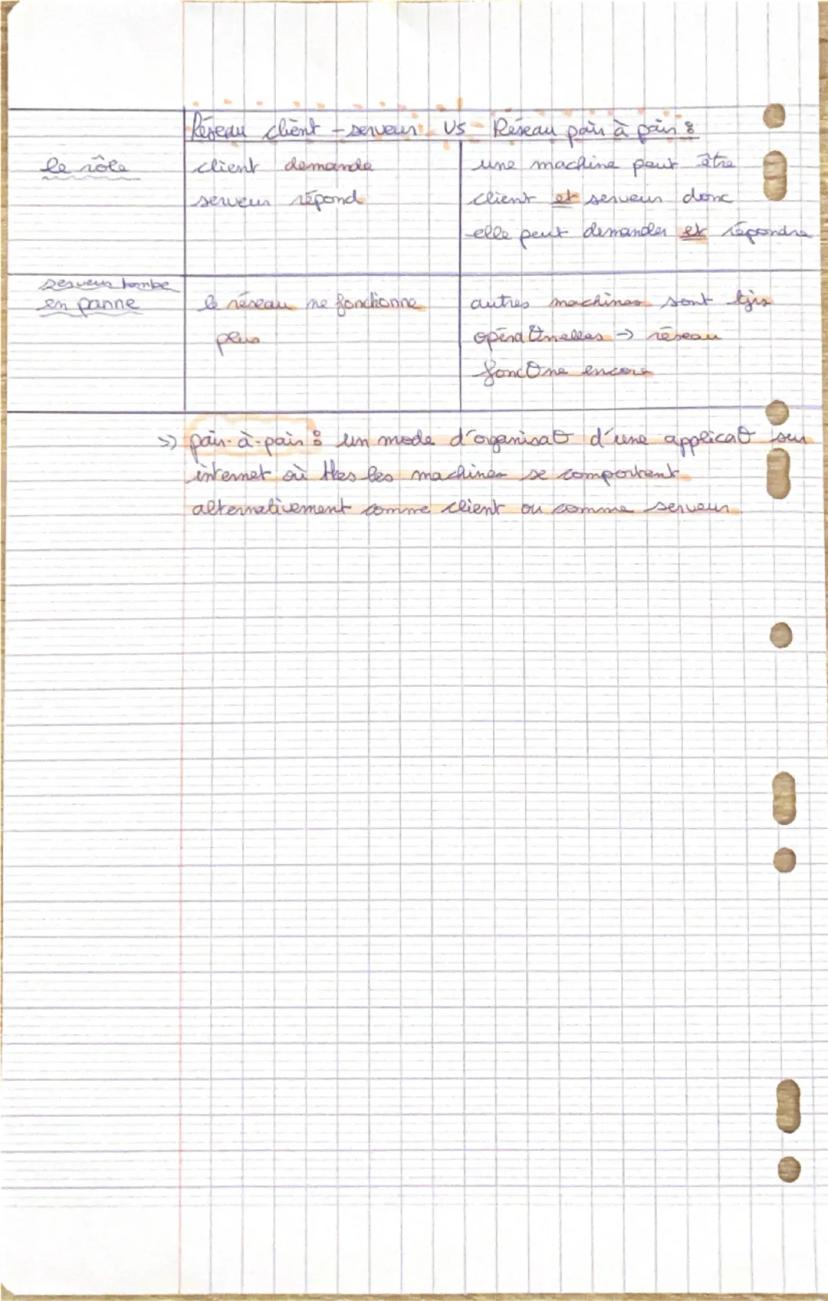 Réseau client - serveur VS Réseau pair à pair :
le rôle
client demande
serveur répond
une machine peut être
client et serveur donc
elle peut demander et répondre
serveur tombe
en panne
le réseau ne fonctionne
plus
autres machines sont tjrs
opéraθnelles → réseau
foncθne encore
=> pair-à-pair : un mode d'organisaθ d'une applicaθ sur
internet où ttes les machines se comportent
alternativement comme client ou comme serveur